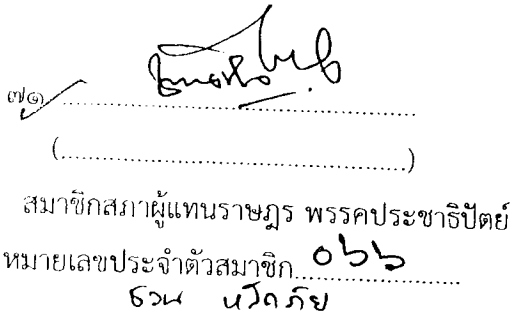 ๗๑ ........................................
(........................................)
สมาชิกสภาผู้แทนราษฎร พรรคประชาธิปัตย์
หมายเลขประจำตัวสมาชิก ๐๖๖
ชวน หลีกภัย